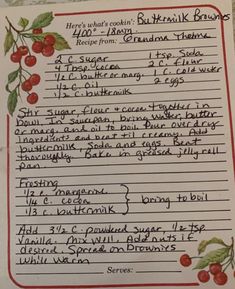 Here's what's cookin': Buttermilk Brownies
400° - 18min
Recipe from: Grandma Thelma
2 C. Sugar 1 tsp. Soda
4 Tbsp. Cocoa 2 C. flour
1/2 C. butter or marg. 1 C. cold water
1/2 C. Oil 2 eggs
1/2 C. buttermilk
Stir sugar, flour & cocoa together in
bowl. In saucepan, bring water, butter
or marg. and oil to boil. Pour over dry
ingredients and beat til creamy. Add
buttermilk, Soda and eggs. Beat
thoroughly. Bake in greased jelly roll
pan.
Frosting
1/2 C. margarine
1/4 C. cocoa bring to boil
1/3 C. buttermilk
Add 3 1/2 C. powdered Sugar, 1/2 tsp
Vanilla. Mix well. Add nuts if
desired. Spread on Brownies
While warm
Serves: